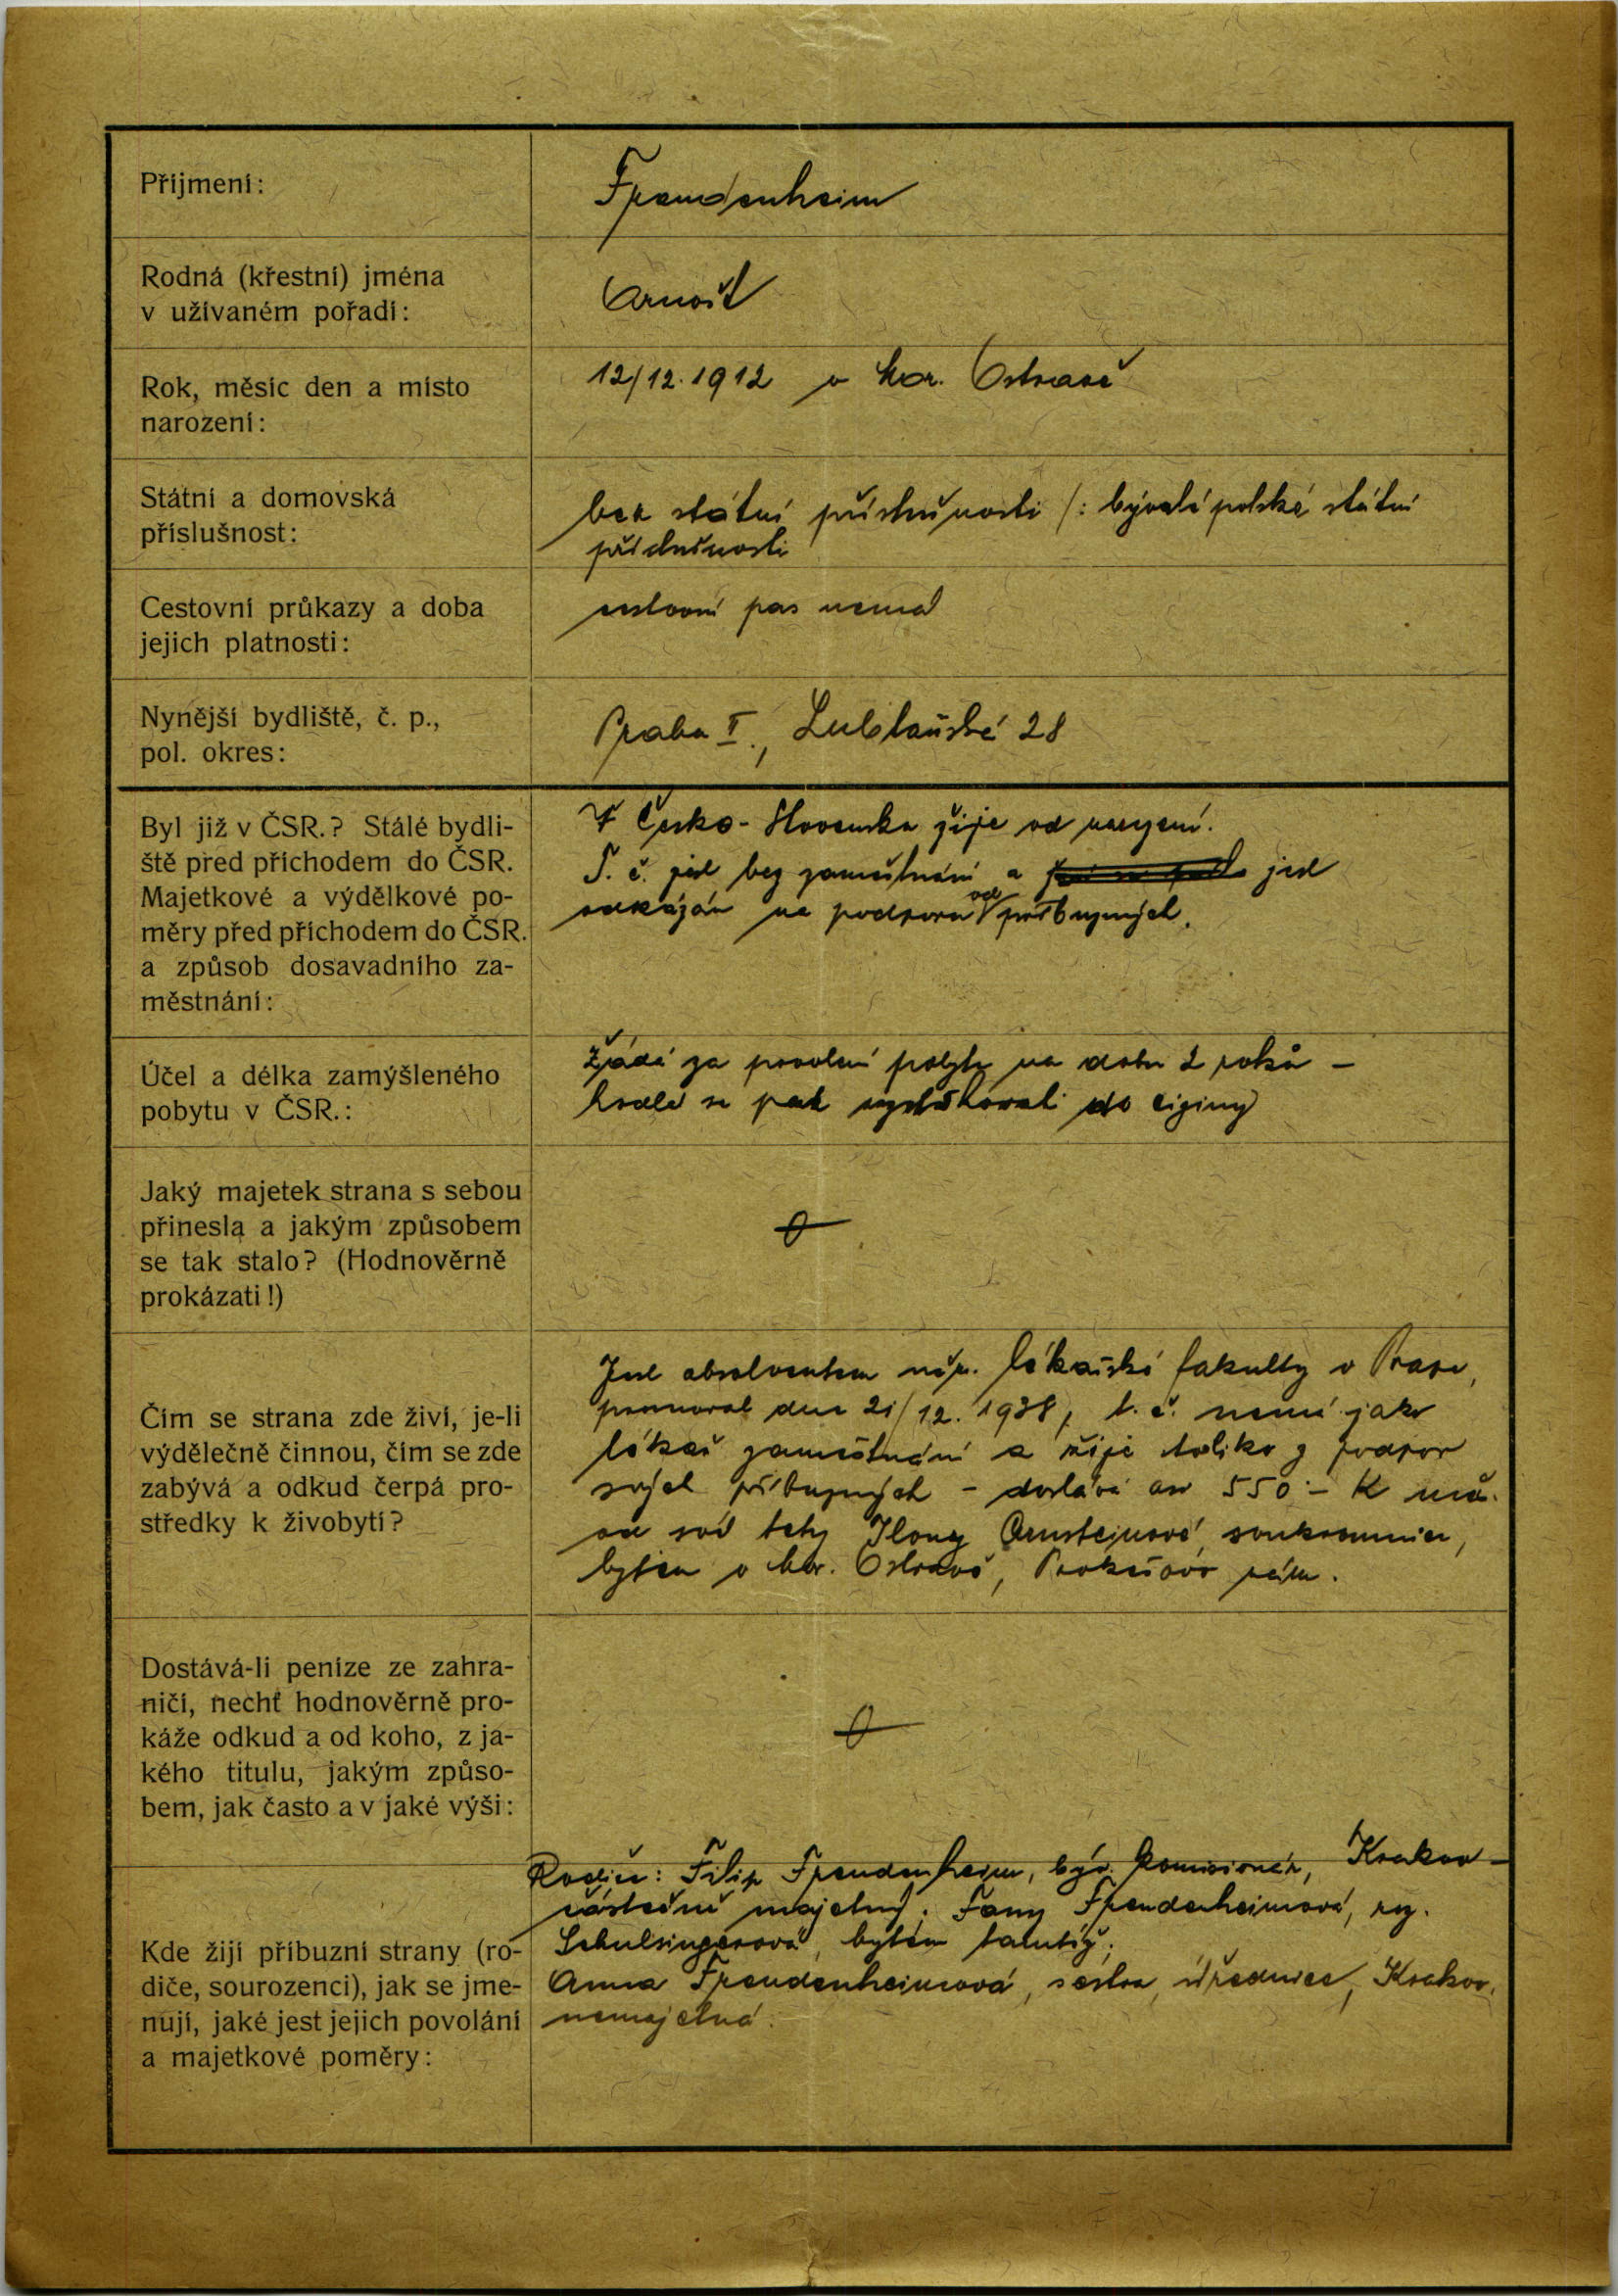 Příjmení:
Freudenheim
Rodná (křestní) jména
v užívaném pořadí:
Arnošt
Rok, měsíc den a místo
narození:
12/12.1912 v Mor. Ostravě
Státní a domovská
příslušnost:
bez státní příslušnosti /: bývalé polské státní
příslušnosti
Cestovní průkazy a doba
jejich platnosti:
cestovní pas nemá
Nynější bydliště, č. p.,
pol. okres:
Praha II., Lublaňská 28
Byl již v ČSR.? Stálé bydli-
ště před příchodem do ČSR.
Majetkové a výdělkové po-
měry před příchodem do ČSR.
a způsob dosavadního za-
městnání:
V Česko-Slovensku žije od narození.
T. č. jest bez zaměstnání a jest
odkázán na podporu od příbuzných.
Účel a délka zamýšleného
pobytu v ČSR.:
Žádá za povolení pobytu na dobu 2 roků –
hodlá se pak vystěhovati do ciziny
Jaký majetek strana s sebou
přinesla a jakým způsobem
se tak stalo? (Hodnověrně
prokázati!)
0
Čím se strana zde živí, je-li
výdělečně činnou, čím se zde
zabývá a odkud čerpá pro-
středky k živobytí?
Jest absolventem něm. lékařské fakulty v Praze,
promoval dne 21/12. 1938, t. č. nemá jako
lékař zaměstnání a žije toliko z podpor
svých příbuzných – dostává asi 550·– K měs.
od své tety Ilony soukromnice,
bytem v Mor. Ostravě, Prokešovo nám.
Dostává-li peníze ze zahra-
ničí, nechť hodnověrně pro-
káže odkud a od koho, z ja-
kého titulu, jakým způso-
bem, jak často a v jaké výši:
0
Kde žijí příbuzní strany (ro-
diče, sourozenci), jak se jme-
nují, jaké jest jejich povolání
a majetkové poměry:
Rodiče: Filip Freudenheim, býv. komisionář, Krakov –
částečně majetný. Fany Freudenheimová, roz.
Schulsingerová, bytem tamtéž.
Anna Freudenheimová, sestra, úřednice, Krakov,
nemajetná.